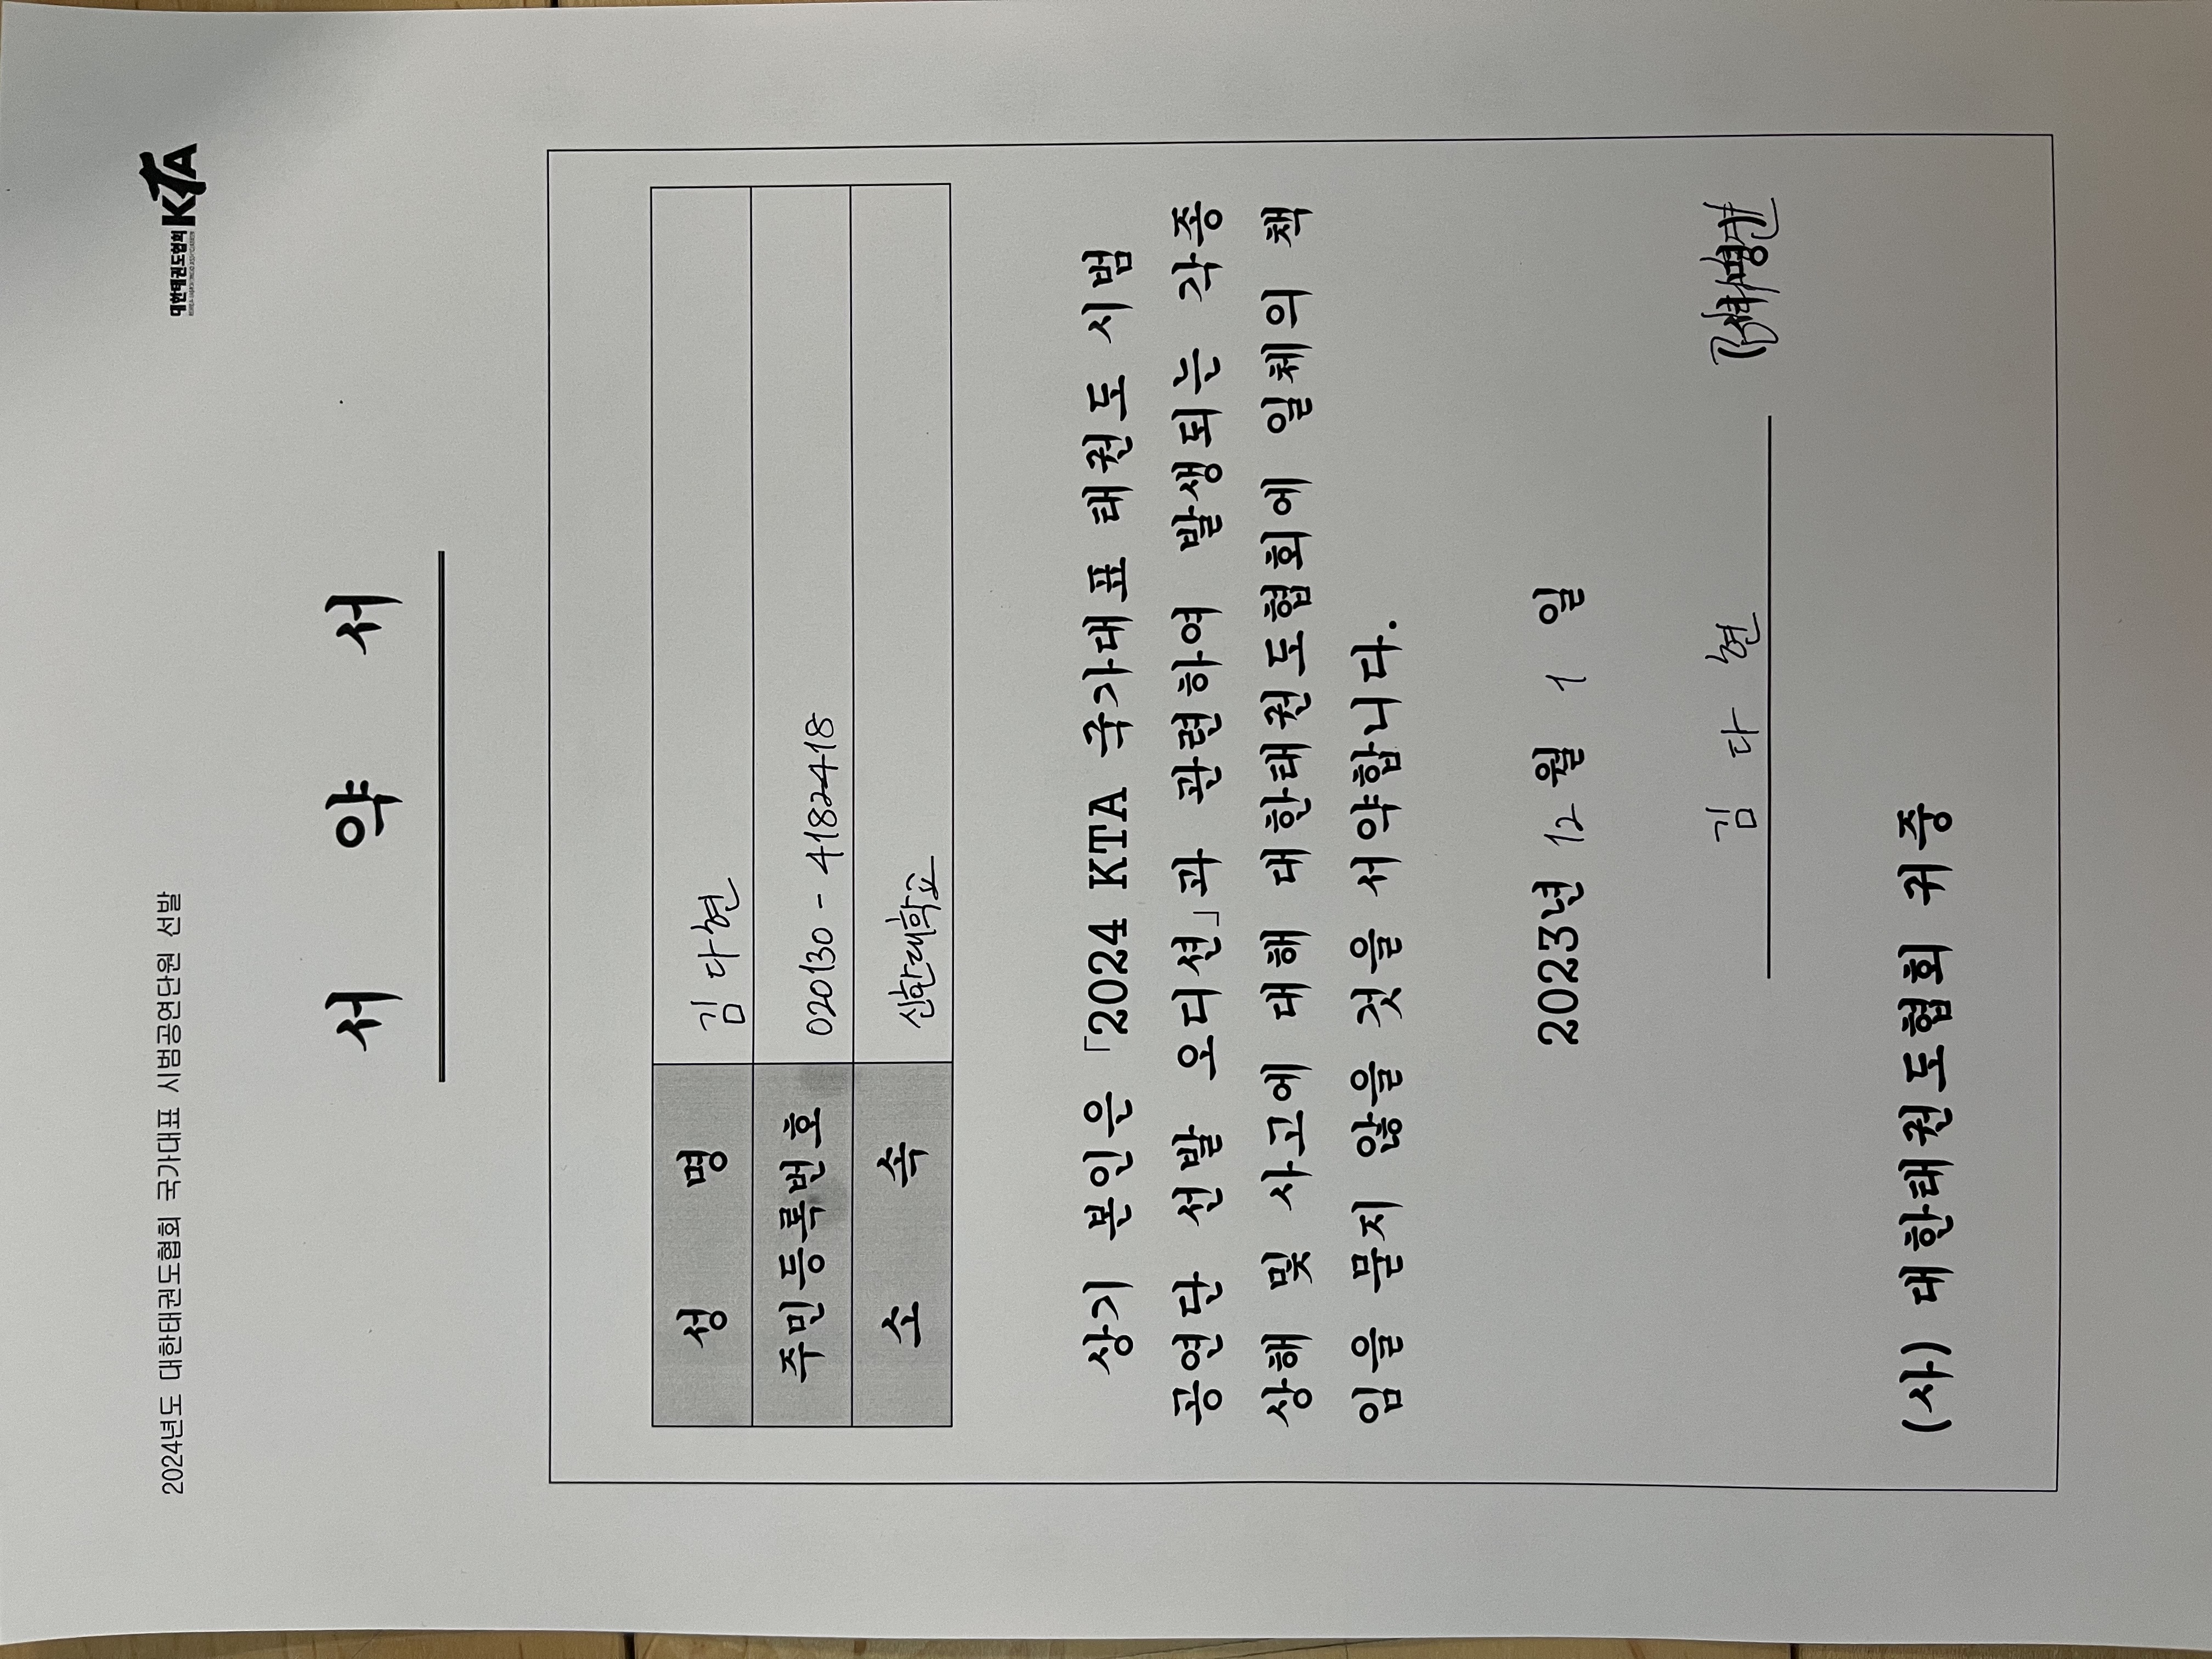 2024년도 대한태권도협회 국가대표 시범공연단원 선발
대한태권도협회 KTA
서 약 서
성 명 김다현
주민등록번호 020130 - 4182418
소 속 신한대학교
상기 본인은 「2024 KTA 국가대표 태권도 시범
공연단 선발 오디션」과 관련하여 발생되는 각종
상해 및 사고에 대해 대한태권도협회에 일체의 책
임을 묻지 않을 것을 서약합니다.
2023년 12월 1일
김 다 현 (서명)
(사) 대한태권도협회 귀중